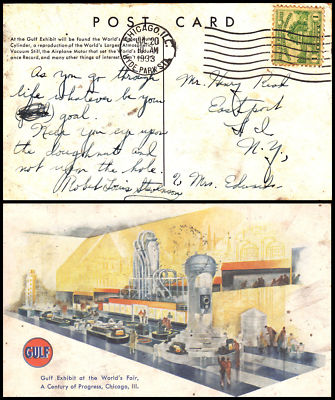 POST CARD
At the Gulf Exhibit will be found the World's
Cylinder, a reproduction of the World's Largest
Vacuum Still, the Airplane Motor that set the World's
ance Record, and many other things of interest
CHICAGO, ILL.
10 AM
1933
As you go through
life whatever be your
goal.
Keep your eye upon
the doughnut
and not upon the hole.
Robert Louis Stevenson
Mr.
Eastport
N.Y.
% Mrs. Edwards
GULF
Gulf Exhibit at the World's Fair,
A Century of Progress, Chicago, Ill.